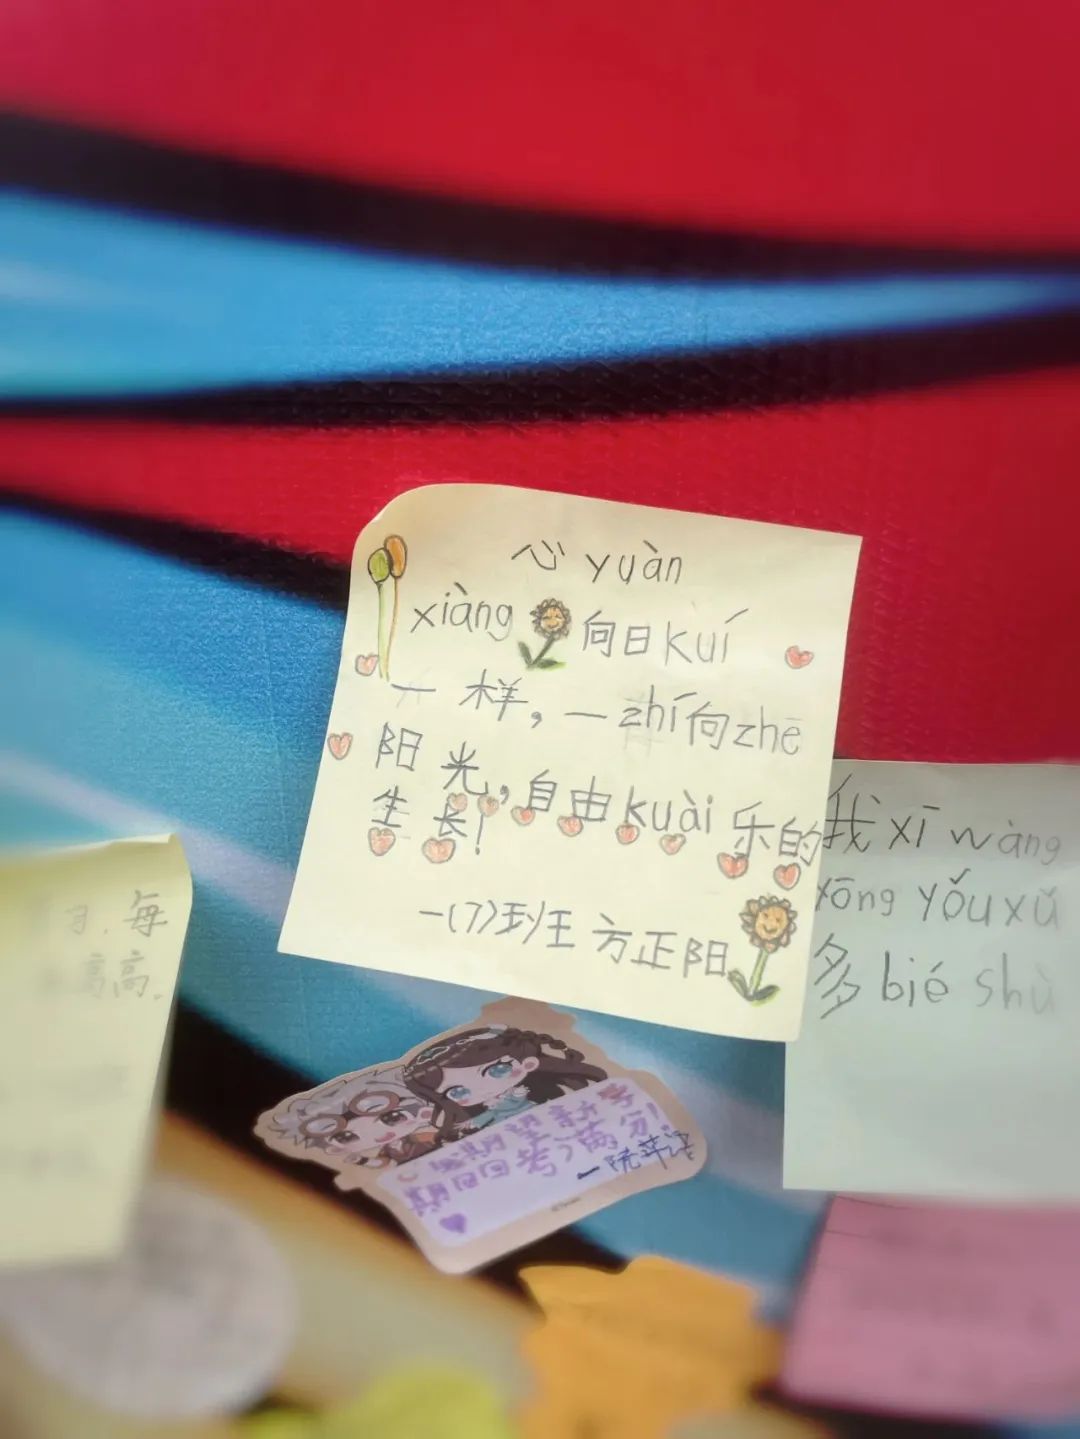 心yuàn
xiàng向日kuí
一样，一zhí向zhē
阳光，自由kuài乐的
生长！
一(7)班 方正阳
我xīwàng
yōngyǒuxǔ
多bié shù
习，每
高高.
期望新学
期回回考满分！